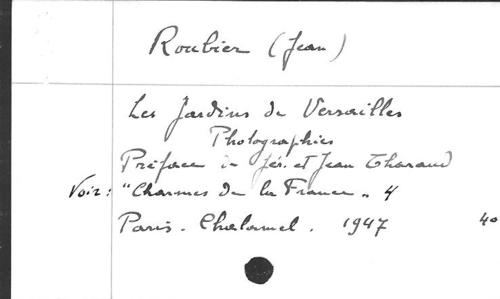 Roubier (Jean)
Les Jardins de Versailles
Photographies
Préface de Jér. et Jean Tharaud
Voir : "Charmes de la France" 4
Paris. Chalamel. 1947 40